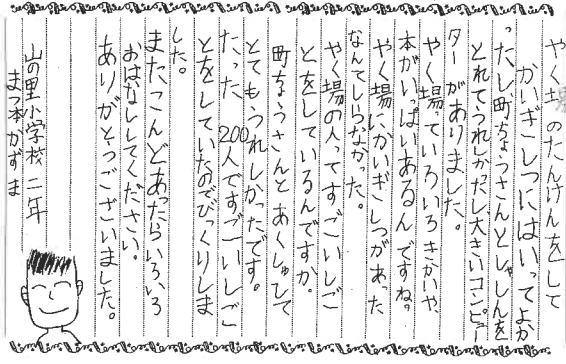 やく場のたんけんをして
かいぎしつにはいってよか
ったし、町ちょうさんとしゃしんを
とれてうれしかっだし大きいコンピュー
ターがありました。
やく場っていろいろきかいや、
本がいっぱいあるんですね。
やく場にかいぎしつがあった
なんてしらなかった。
やく場の人ってすごいしご
とをしているんですか。
町ちょうさんとあくしゅして
とてもうれしかったです。
たった200人ですごーいしご
とをしていたのでびっくりしま
した。
またこんどあったらいろいろ
おはなししてください。
ありがとうございました。
山の里小学校二年
まつ本かずま